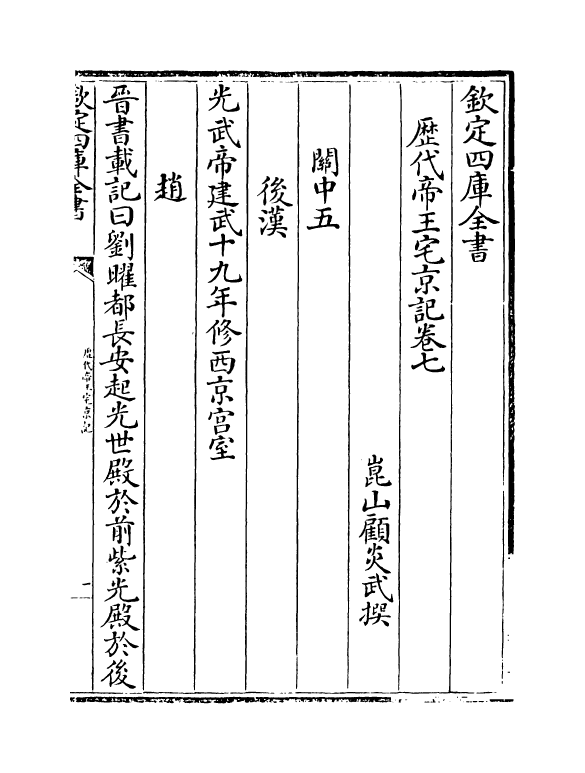 欽定四庫全書
歴代帝王宅京記卷七
崑山顧炎武撰
關中五
後漢
光武帝建武十九年修西京宮室
趙
晉書載記曰劉曜都長安起光世殿於前紫光殿於後
欽定四庫全書
歴代帝王宅京記
一